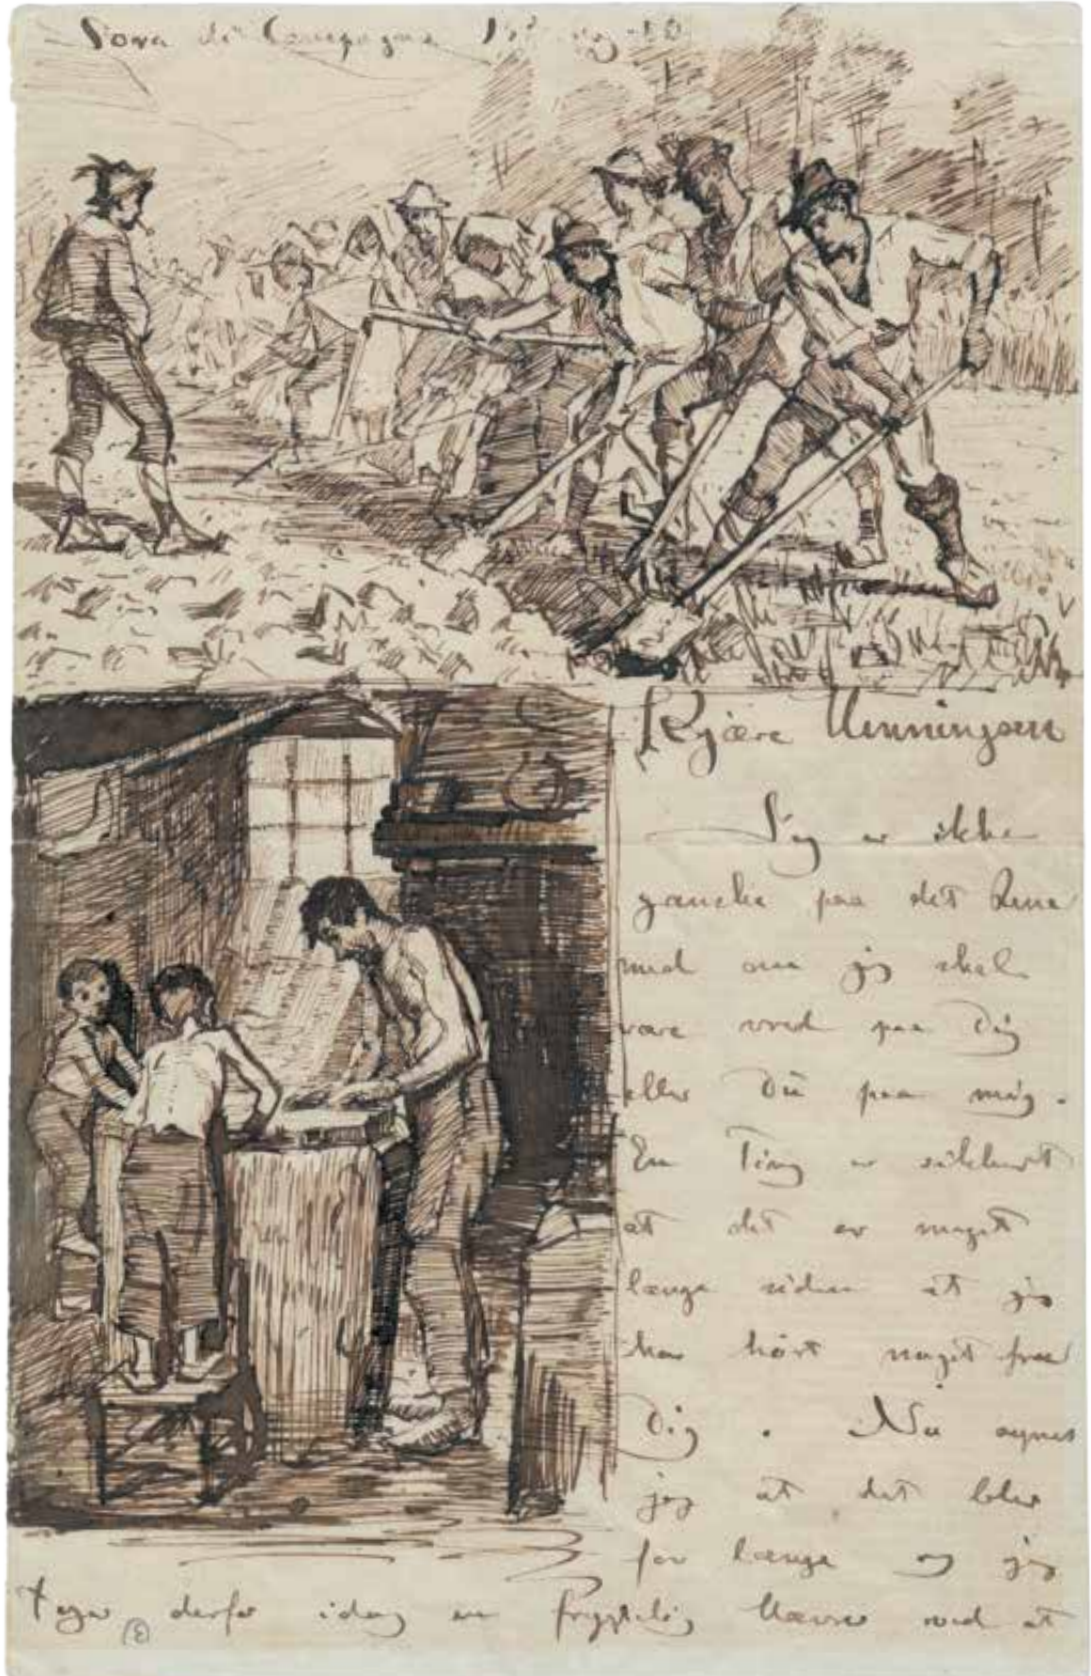 Sora di Campagna
Kjære Henningsen
Jeg er ikke
ganske paa det Rene
med om jeg skal
være vred paa Dig
eller Du paa mig.
En Ting er sikkert
at det er meget
længe siden at jeg
har hørt noget fra
Dig. Nu synes
jeg at det blir
for længe og jeg
tager derfor idag en frygtelig Kløe ved at